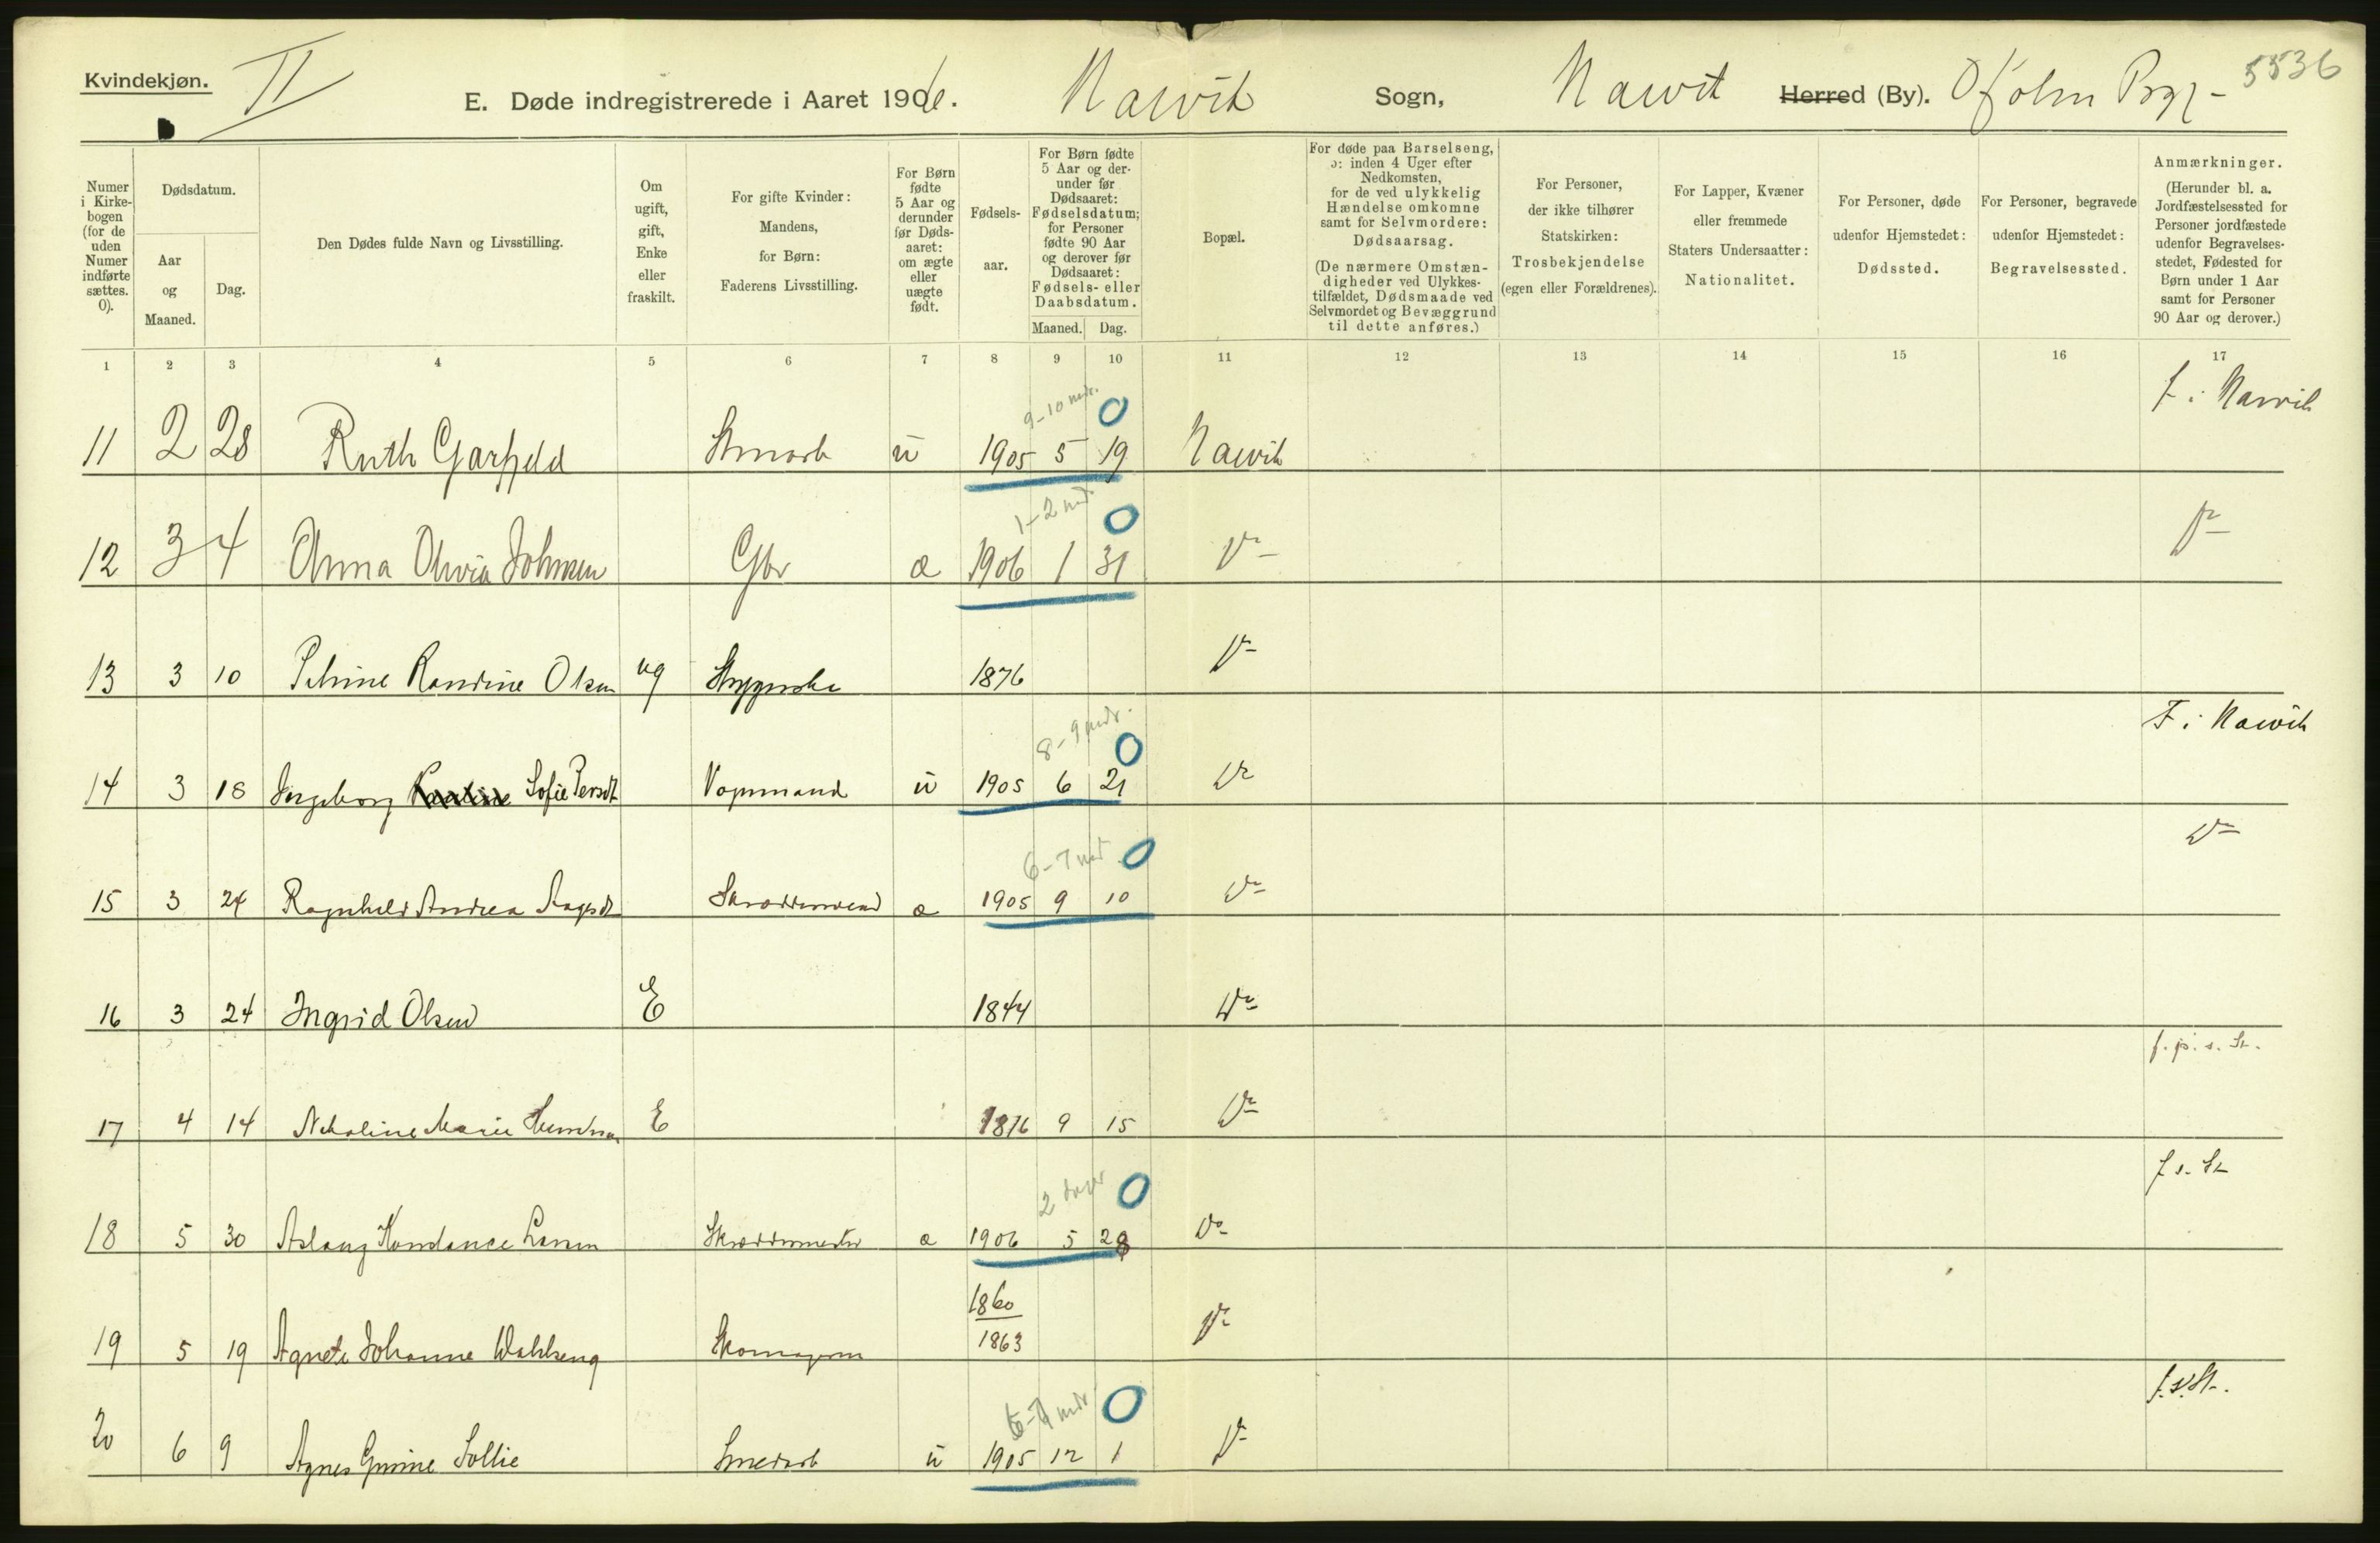 Kvindekjøn. II E. Døde indregistrerede i Aaret 1906. Narvik Sogn, Narvik Herred (By). 5536
Numer i Kirkebogen (for de uden Numer indførte sættes. 0).
Dødsdatum.
Aar og Maaned.
Dag.
Den Dødes fulde Navn og Livsstilling.
Om ugift, gift, Enke eller fraskilt.
For gifte Kvinder: Mandens, for Børn: Faderens Livsstilling.
For Børn fødte 5 Aar og derunder før Dødsaaret: om ægte eller uægte født.
Fødselsaar.
For Børn fødte 5 Aar og derunder før Dødsaaret: Fødselsdatum; for Personer fødte 90 Aar og derover før Dødsaaret: Fødsels- eller Daabsdatum.
Maaned. Dag.
Bopæl.
For døde paa Barselseng, ɔ: inden 4 Uger efter Nedkomsten, for de ved ulykkelig Hændelse omkomne samt for Selvmordere: Dødsaarsag.
(De nærmere Omstændigheder ved Ulykkestilfældet, Dødsmaade ved Selvmordet og Bevæggrund til dette anføres.)
For Personer, der ikke tilhører Statskirken: Trosbekjendelse (egen eller Forældrenes).
For Lapper, Kvæner eller fremmede Staters Undersaatter: Nationalitet.
For Personer, døde udenfor Hjemstedet: Dødssted.
For Personer, begravede udenfor Hjemstedet: Begravelsessted.
Anmærkninger.
(Herunder bl. a. Jordfæstelsessted for Personer jordfæstede udenfor Begravelsesstedet, Fødested for Børn under 1 Aar samt for Personer 90 Aar og derover.)
1 2 3 4 5 6 7 8 9 10 11 12 13 14 15 16 17
9-10 mdr. 0 f. i Narvik
11 2 28 Ruth Garfjeld u 1905 5 19 Narvik
1-2 md 0
12 3 4 Anna Olivia Johnsen æ 1906 1 31 Do
13 3 10 Randine Olsen ug Sygerske 1876 Do
8-9 mdr. 0 F. i Narvik
14 3 18 Ingeborg Sofie Persdt u 1905 6 21 Do
6-7 md 0 Do
15 3 24 Ragnhild Andrea æ 1905 9 10 Do
16 3 24 Ingrid Olsen E 1844 Do
f. p. s. St.
17 4 14 Marie E 1816 9 15 Do
2 dager 0 f. s. St
18 5 30 Aslaug Konstance Larsen Skræddermester æ 1906 5 28 Do
1860
19 5 19 Agnete Johanne 1863 Do
6-7 mdr 0 f. s. St.
20 6 9 Agnes Sollie Smedarb u 1905 12 1 Do